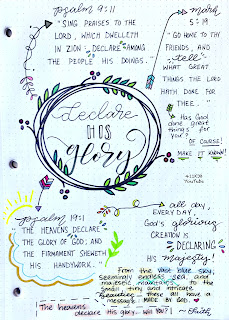 psalm 9:11
"SING PRAISES TO THE
LORD, WHICH DWELLETH
IN ZION: DECLARE AMONG
THE PEOPLE HIS DOINGS."
mark
5:19
"GO HOME TO THY
FRIENDS, AND
"tell"
WHAT GREAT
THINGS THE LORD
HATH DONE FOR
THEE."
Has God
done great
things for
you?
OF COURSE!
MAKE IT KNOWN!
declare
HIS
glory
YOUTUBE
psalm 19:1
THE HEAVENS DECLARE
THE GLORY OF GOD; AND
THE FIRMAMENT SHEWETH
HIS HANDYWORK.
all day,
EVERY DAY,
God's glorious
CREATION IS
DECLARING
HIS majesty!
From the vast blue sky,
seemingly endless sea, and
majestic mountains to the
small, tiny and intricate
beauties - they all have a
message MADE BY GOD.
The heavens
declare His glory. Will you?